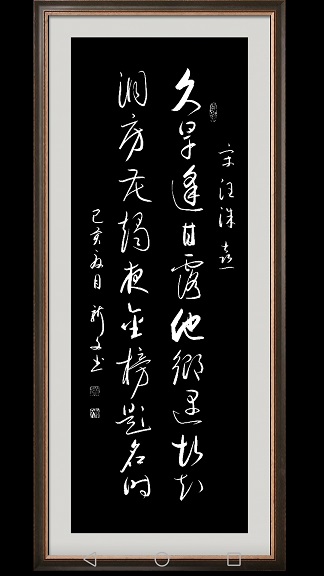 宋汪洙喜
久旱逢甘露他鄉遇故知
洞房花燭夜金榜題名时
己亥夏日文书